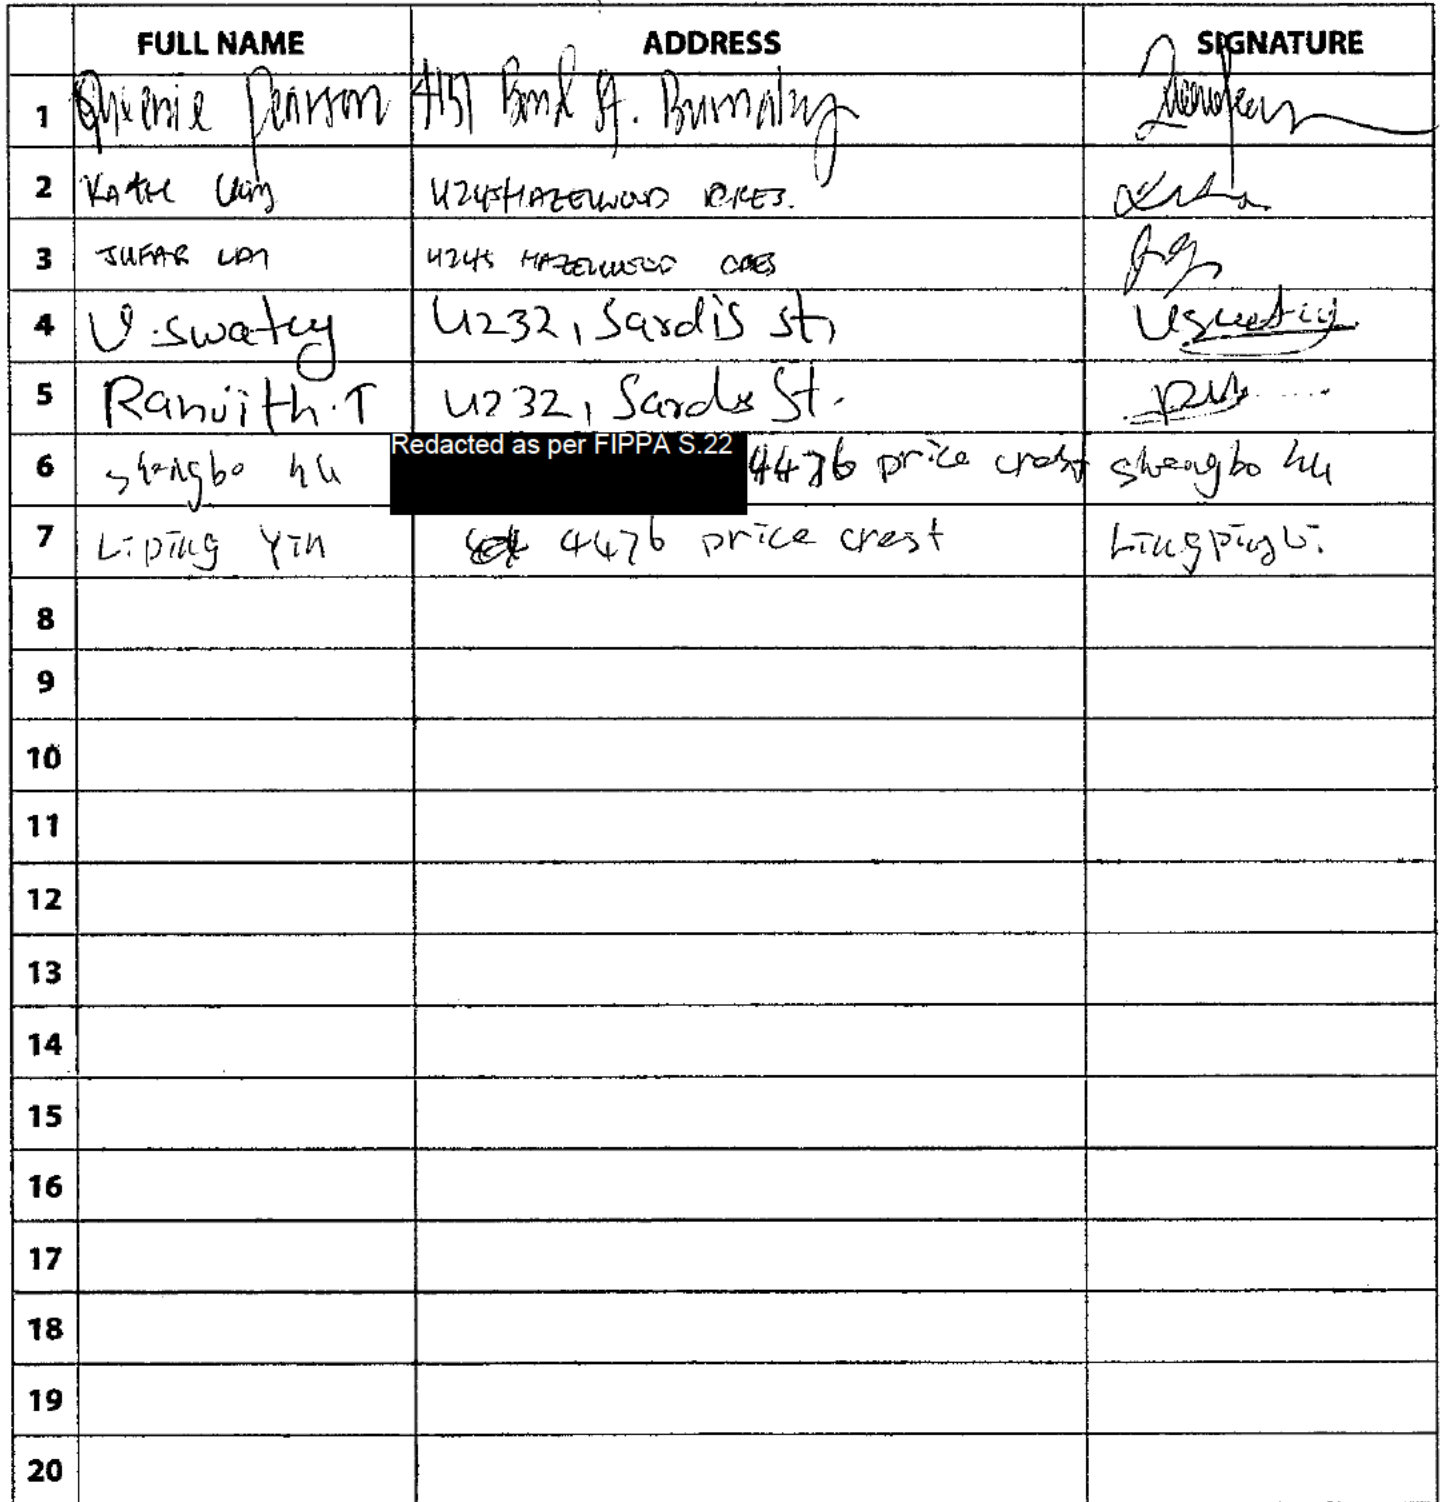 FULL NAME ADDRESS SIGNATURE
1 Queenie Pearson 4151 Bond St. Burnaby
2 4245 HAZELWOOD CRES.
3 JUFAR LAI 4245 HAZELWOOD CRES
4 V. swatey 4232, Sardis st,
5 Ranjith. T 4232, Sardis St.
Redacted as per FIPPA S.22
6 shengbo hu 4476 price crest shengbo hu
7 Liping Yin 4476 price crest
8
9
10
11
12
13
14
15
16
17
18
19
20